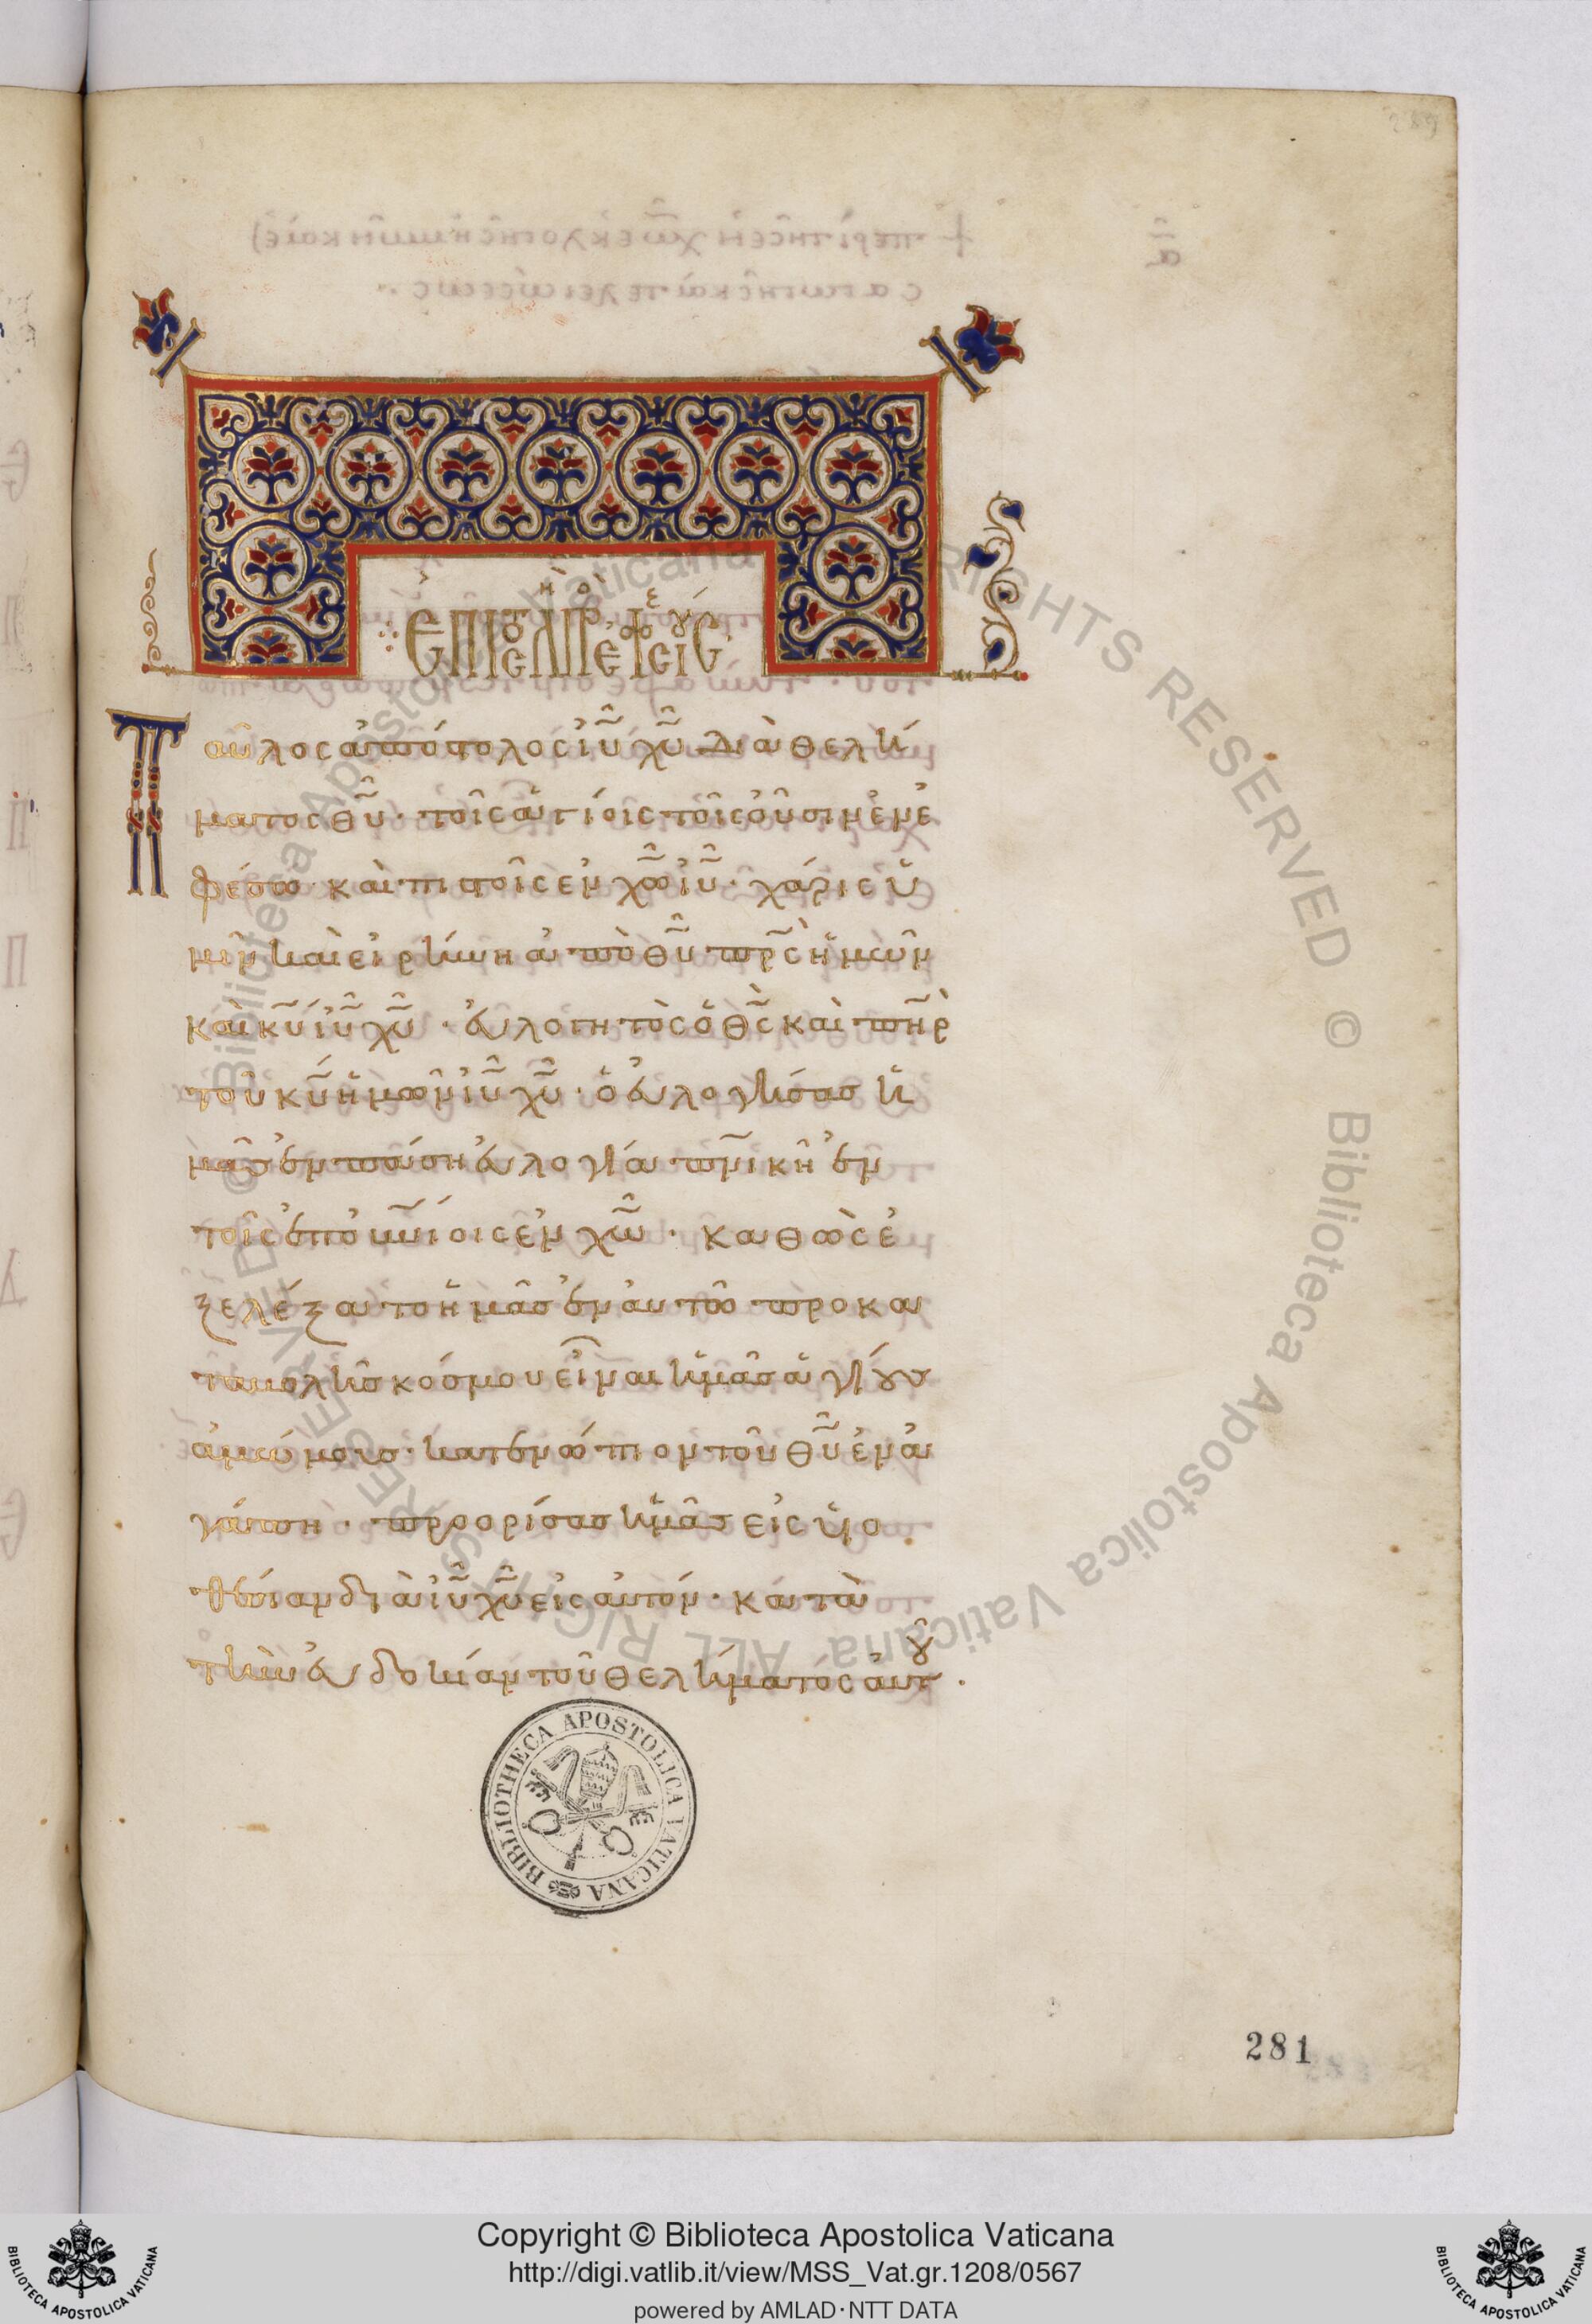 ἐπιστολὴ πρὸς ἐφεσίους
Παῦλος ἀπόστολος ἰῦ χῦ διὰ θελή
ματος θῦ · τοῖς ἁγίοις τοῖς οὖσιν ἐν ἐ
φέσω · καὶ πιστοῖς ἐν χῶ ἰῦ · χάρις ὑ
μῖν καὶ εἰρήνη ἀπὸ θῦ πρς ἡμῶν
καὶ κῦ ἰῦ χῦ · εὐλογητὸς ὁ θς καὶ πηρ
τοῦ κῦ ἡμῶν ἰῦ χῦ · ὁ εὐλογήσας ἡ
μᾶς ἐν πάση εὐλογία πνικῆ ἐν
τοῖς ἐπουνίοις ἐν χῶ · καθὼς ἐ
ξελέξατο ἡμᾶς ἐν αὐτῶ προ κα
ταβολῆς κόσμου εἶναι ἡμᾶς ἁγίους
ἀμώμους · κατενώπιον τοῦ θῦ ἐν ἀ
γάπη · προορίσας ἡμᾶς εἰς υἱο
θεσίαν διὰ ἰῦ χῦ εἰς αὐτόν · κατὰ
τὴν εὐδοκίαν τοῦ θελήματος αὐτοῦ ·
BIBLIOTHECA APOSTOLICA VATICANA
281
© Biblioteca Apostolica Vaticana ALL RIGHTS RESERVED
Copyright © Biblioteca Apostolica Vaticana
http://digi.vatlib.it/view/MSS_Vat.gr.1208/0567
powered by AMLAD·NTT DATA
BIBLIOTECA APOSTOLICA VATICANA
BIBLIOTECA APOSTOLICA VATICANA